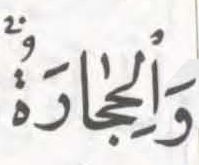 وَالْحِجَارَةُ